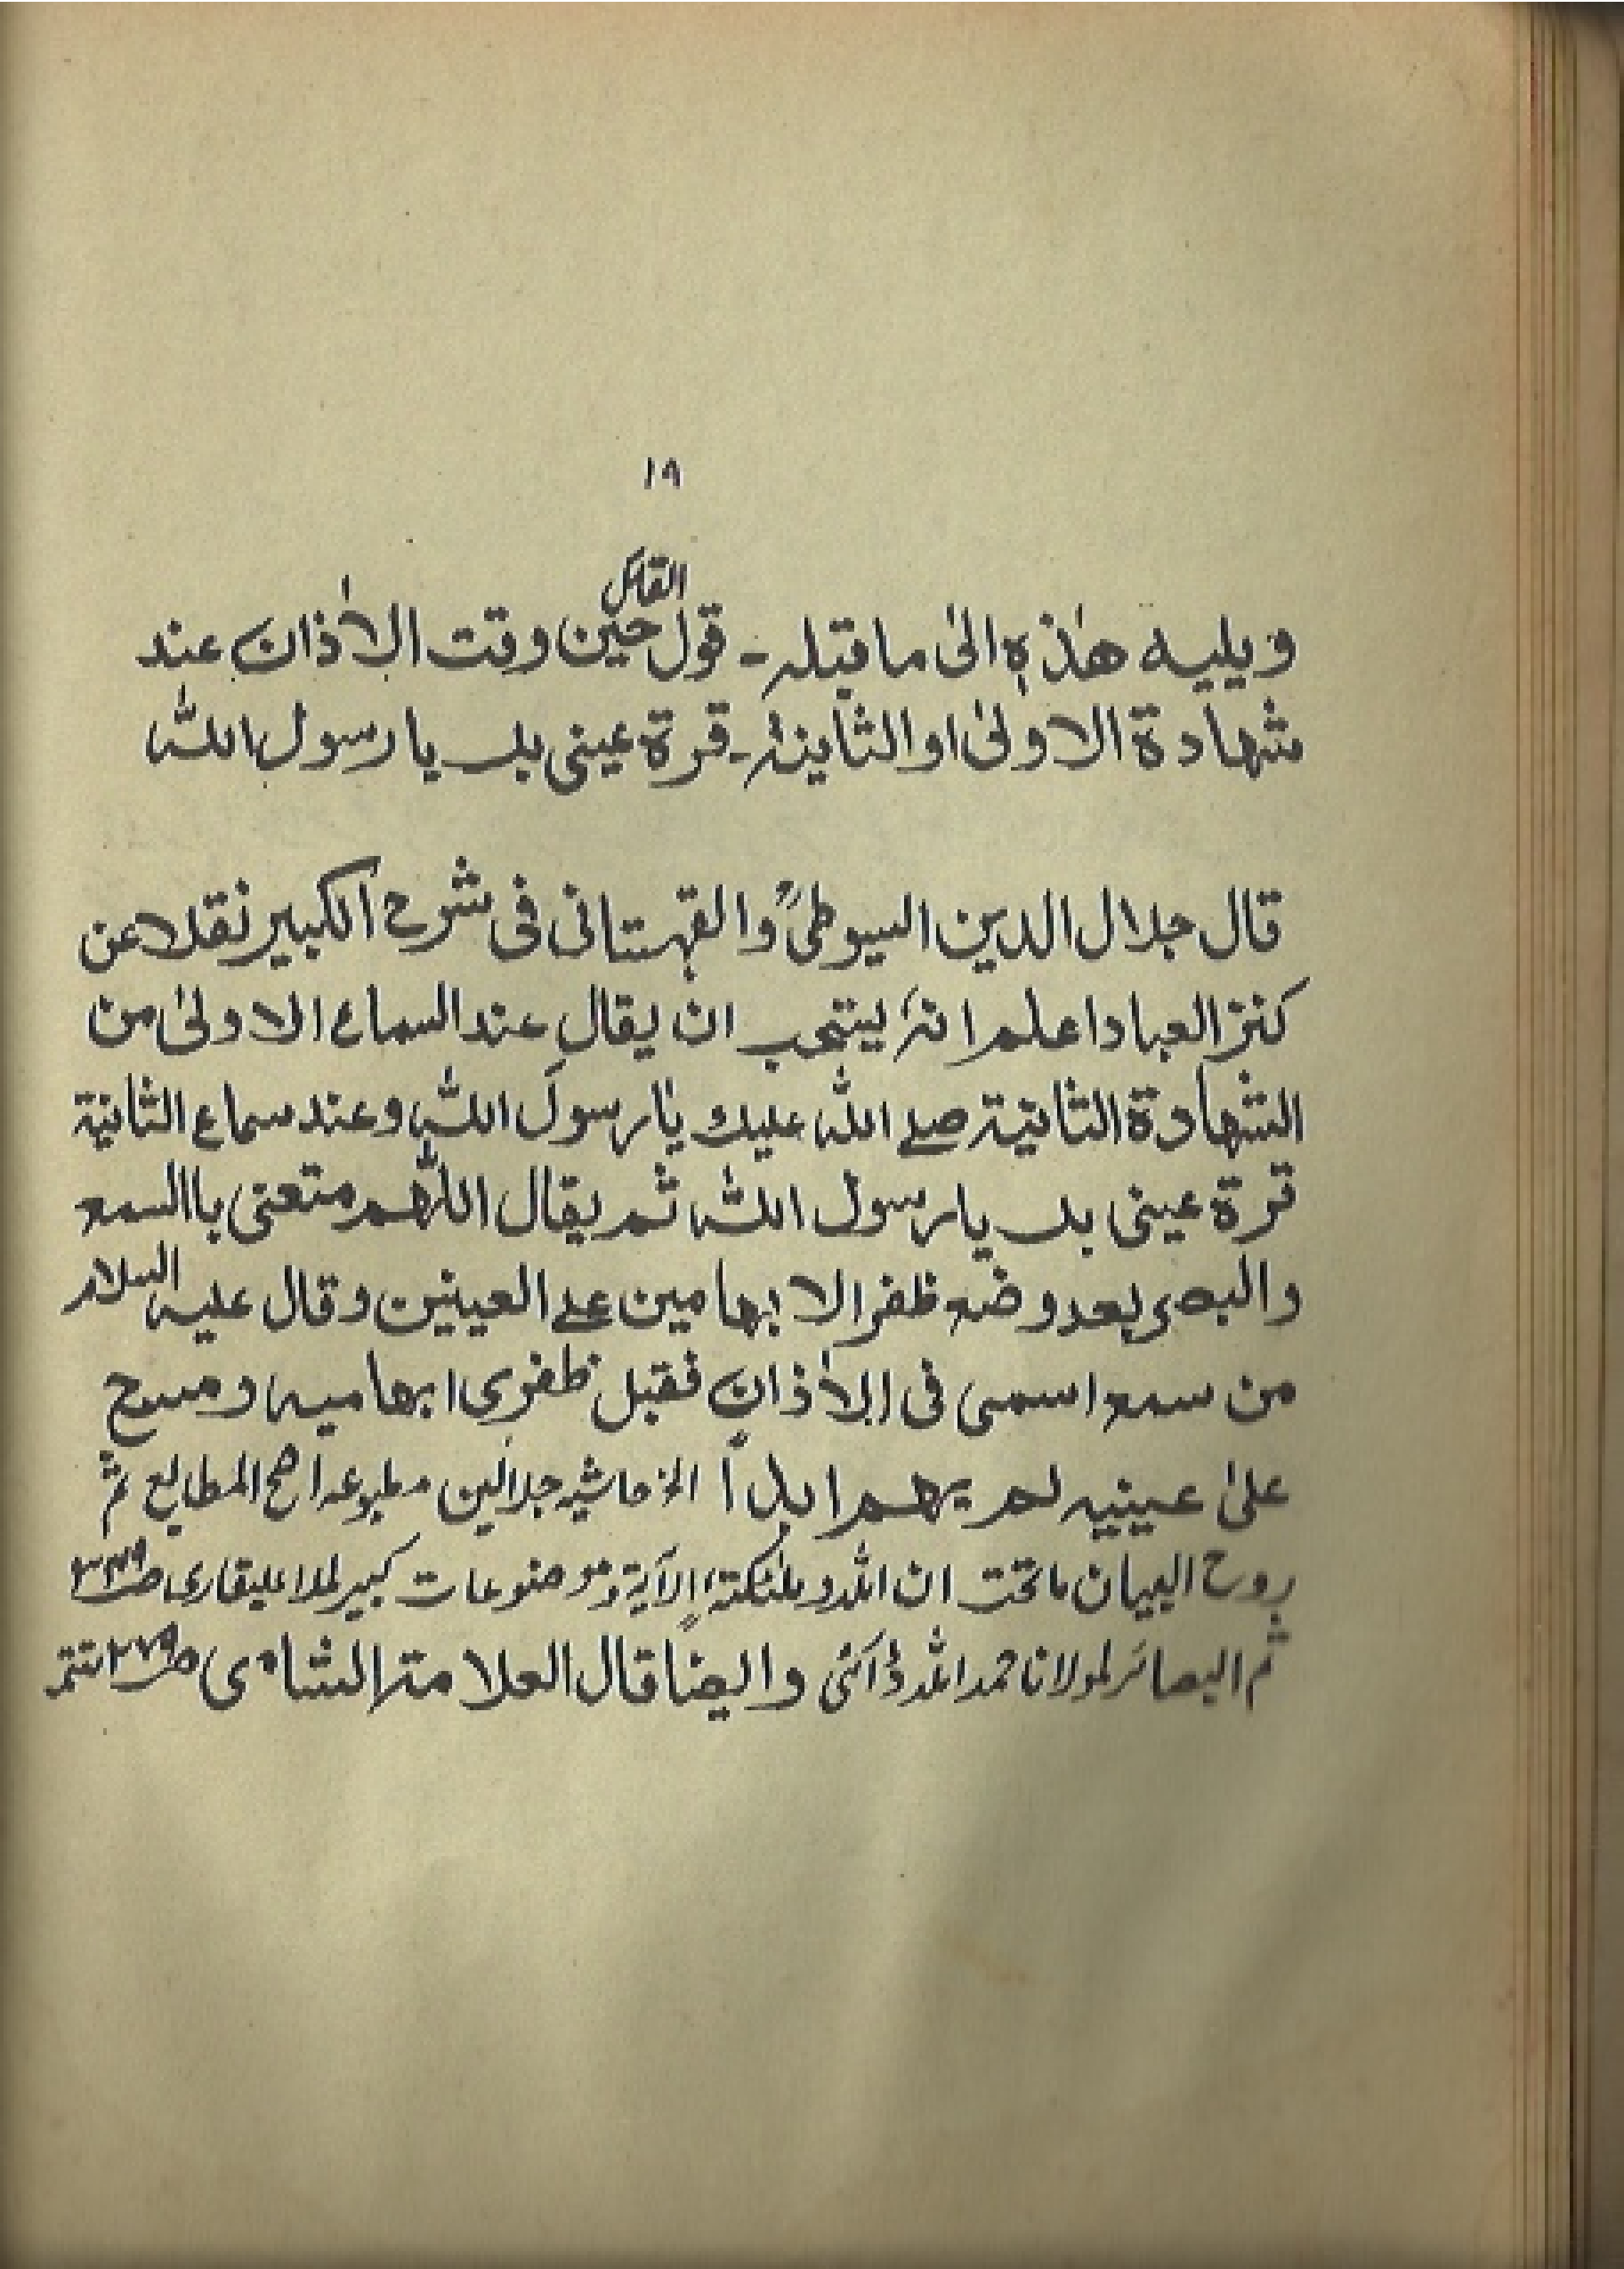 ١٩
القائل
ويليه هٰذه الىٰ ما قبله - قول حين وقت الاذان عند
شهادة الاولىٰ او الثانية - قرة عينى بك يا رسول الله
قال جلال الدين السيوطىؒ والقهستانى فى شرح الكبير نقلا عن
كنز العباد اعلم انهٗ يستحب ان يقال عند السماع الاولىٰ من
الشهادة الثانية صلے الله عليك يا رسول الله وعند سماع الثانية
قرة عينى بك يا رسول الله ثم يقال اللٰهم متعنى باالسمع
والبصر بعد وضع ظفر الابهامين علے العينين وقال عليه السلام
من سمع اسمى فى الاذان فقبل ظفرى ابهاميه ومسح
علىٰ عينيه لم يهم ابداً الخ حاشيه جلالين مطبوعه اصح المطابع ثم
روح البيان ماتحت ان الله وملٰئكته، الآية وموضوعات كبير لملا عليقارى
ثم البصائر لمولانا حمد الله وايضا قال العلامة الشامى ص٢٧٩ تتمة